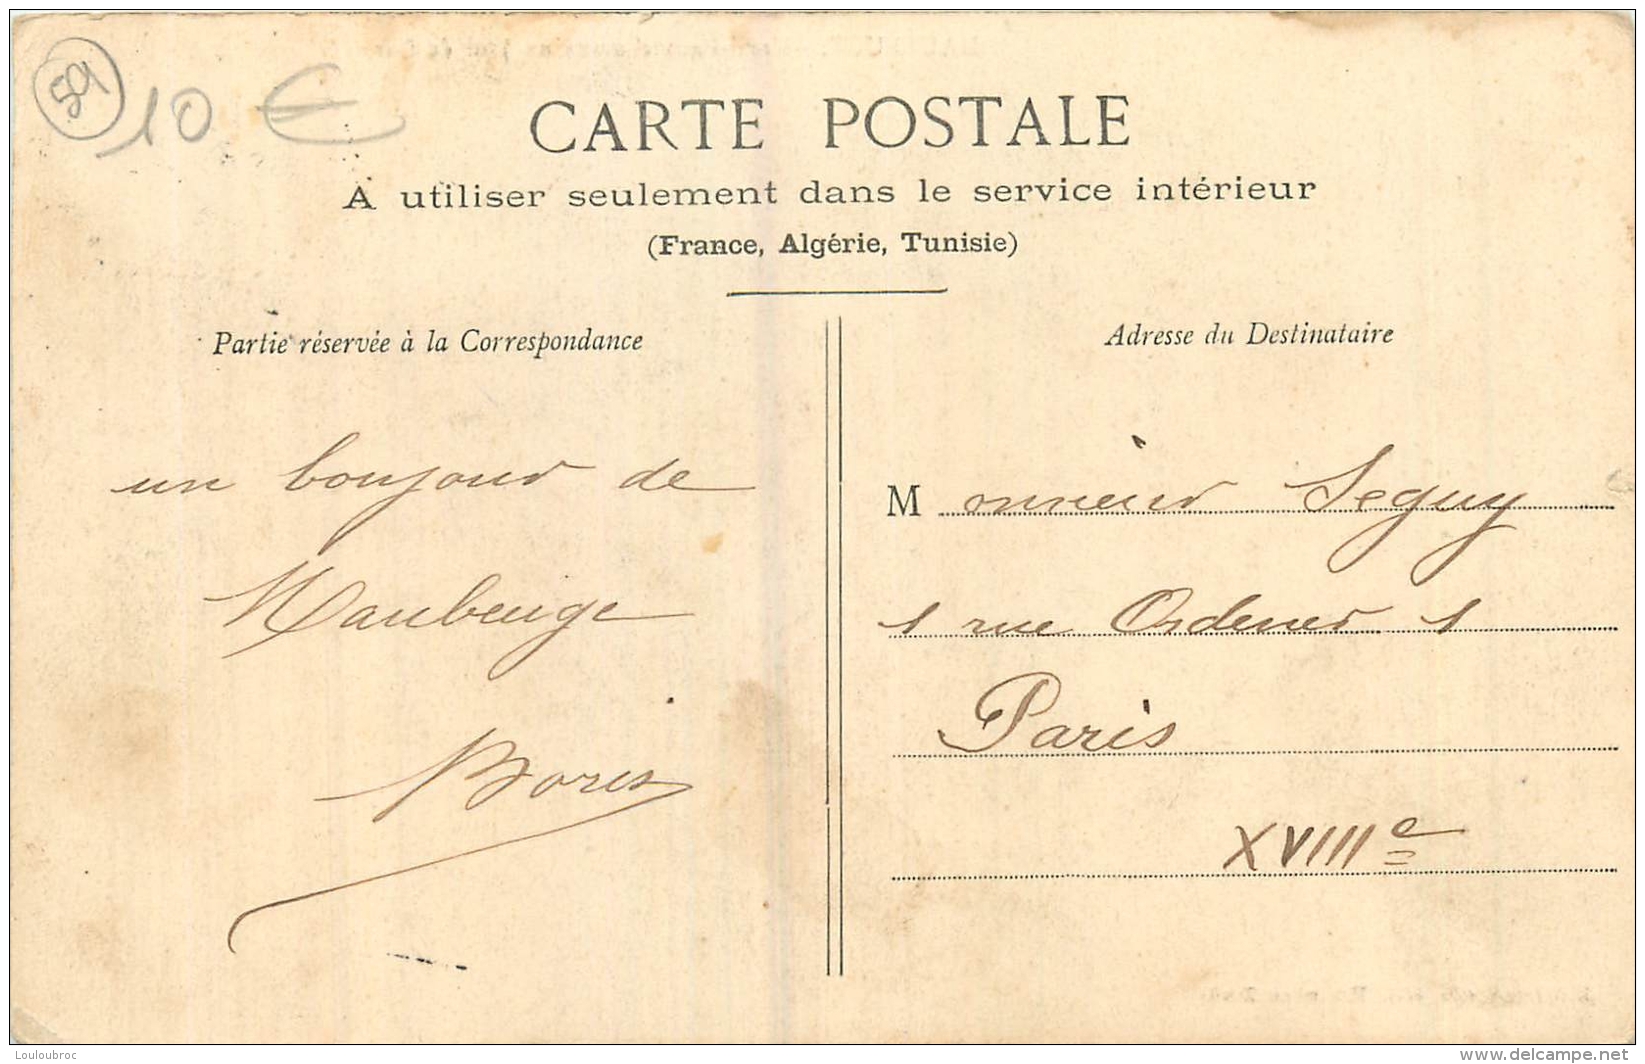 59
10 €
CARTE POSTALE
A utiliser seulement dans le service intérieur
(France, Algérie, Tunisie)
Partie réservée à la Correspondance
Adresse du Destinataire
un bonjour de
Maubeuge
Boris
Monsieur Seguy
1 rue Ordener 1
Paris
XVIIIe
Louloubroc
www.delcampe.net